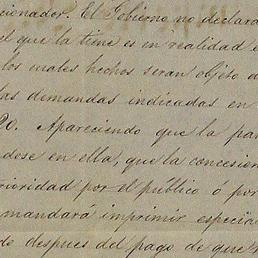 cionador. El Gobierno no declara
el que la tiene es en realidad e
los cuales hechos seran objeto d
las demandas indicadas en
20. Apareciendo que la pa
dose en ella, que la concesion
rioridad por el público ó por
mandará imprimir especia
do despues del pago de que